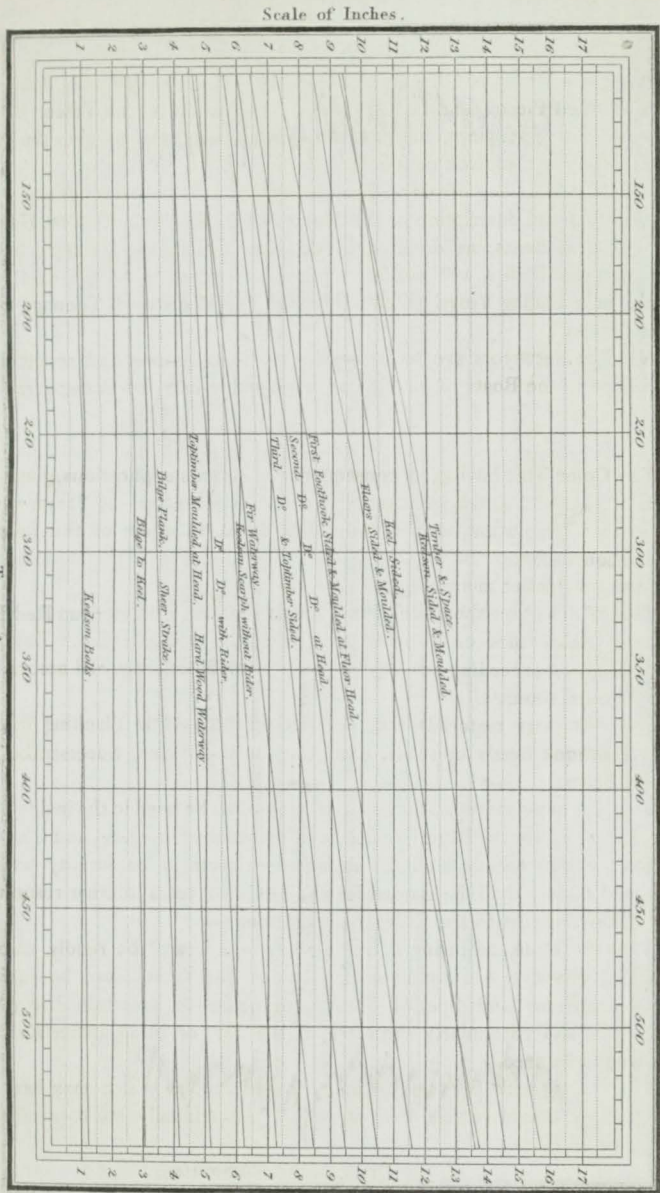 Scale of Inches.
1 2 3 4 5 6 7 8 9 10 11 12 13 14 15 16 17
150 150
200 200
250 250
300 300
350 350
400 400
450 450
500 500
Timber & Space.
Keelson Sided & Moulded.
Keel Sided.
Floors Sided & Moulded.
First Foothook Sided & Moulded at Floor Head.
Second Do. Do. Do. at Head.
Third Do. & Toptimber Sided.
Fir Waterway.
Keelson Scarph without Rider.
Do. Do. with Rider.
Toptimber Moulded at Head. Hard Wood Waterway.
Bilge Plank, Shear Strake.
Bilge to Keel.
Keelson Bolts.
1 2 3 4 5 6 7 8 9 10 11 12 13 14 15 16 17